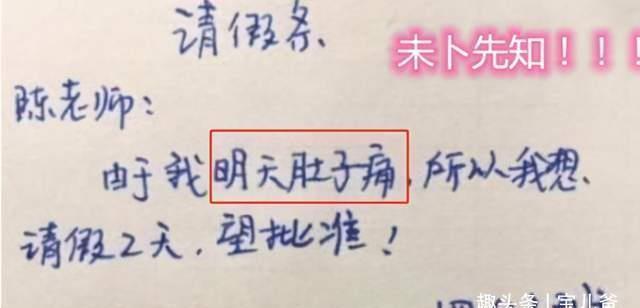 请假条
未卜先知！！！
陈老师：
由于我明天肚子痛，所以我想
请假2天，望批准！
趣头条 | 宝儿爸